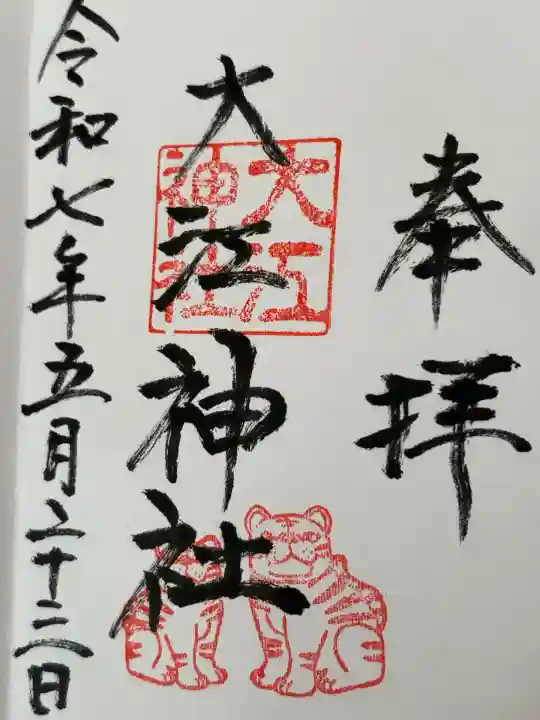 奉拝
大江神社
大江
神社
令和七年五月二十三日